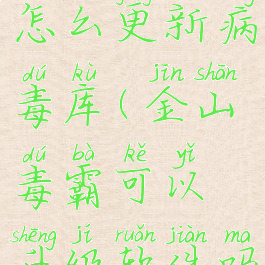 怎么更新病
dú kù jīn shān
毒库(金山
dú bà kě yǐ
毒霸可以
shēng jí ruǎn jiàn ma
升级软件吗